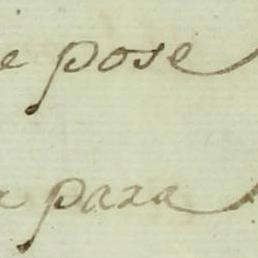 e pose
a para